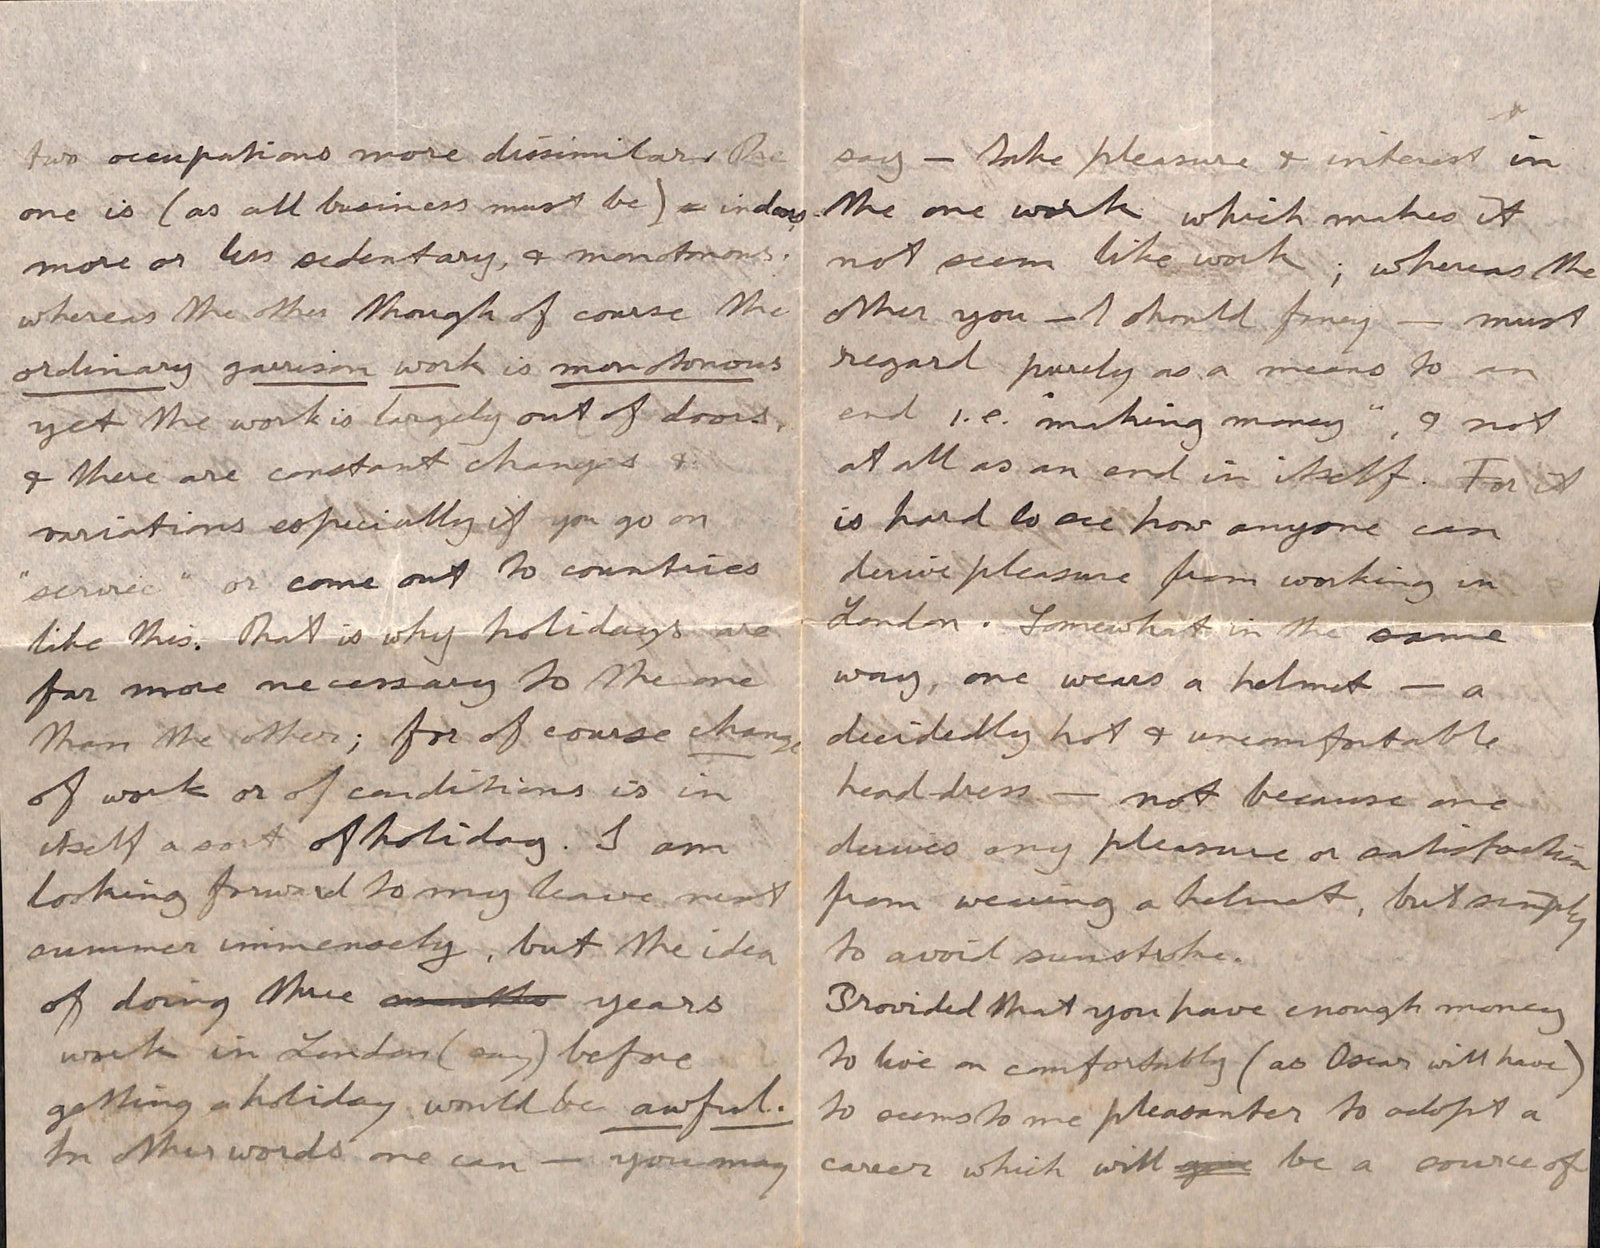 two occupations more dissimilar. The
one is (as all business must be) indoors,
more or less sedentary, & monotonous.
whereas the other though of course the
ordinary garrison work is monotonous
yet the work is largely out of doors,
& there are constant changes &
variations especially if you go on
"service" or come out to countries
like this. That is why holidays are
far more necessary to the one
than the other; for of course change
of work or of conditions is in
itself a sort of holiday. I am
looking forward to my leave next
summer immensely, but the idea
of doing three years
work in London (say) before
getting a holiday would be awful.
In other words one can — you may
say — take pleasure & interest in
the one work which makes it
not seem like work; whereas the
other you — I should fancy — must
regard purely as a means to an
end i.e. "making money", & not
at all as an end in itself. For it
is hard to see how anyone can
derive pleasure from working in
London. Somewhat in the same
way, one wears a helmet — a
decidedly hot & uncomfortable
head-dress — not because one
derives any pleasure or satisfaction
from wearing a helmet, but simply
to avoid sunstroke.
Provided that you have enough money
to live on comfortably (as Oscar will have)
to seems to me pleasanter to adopt a
career which will be a source of